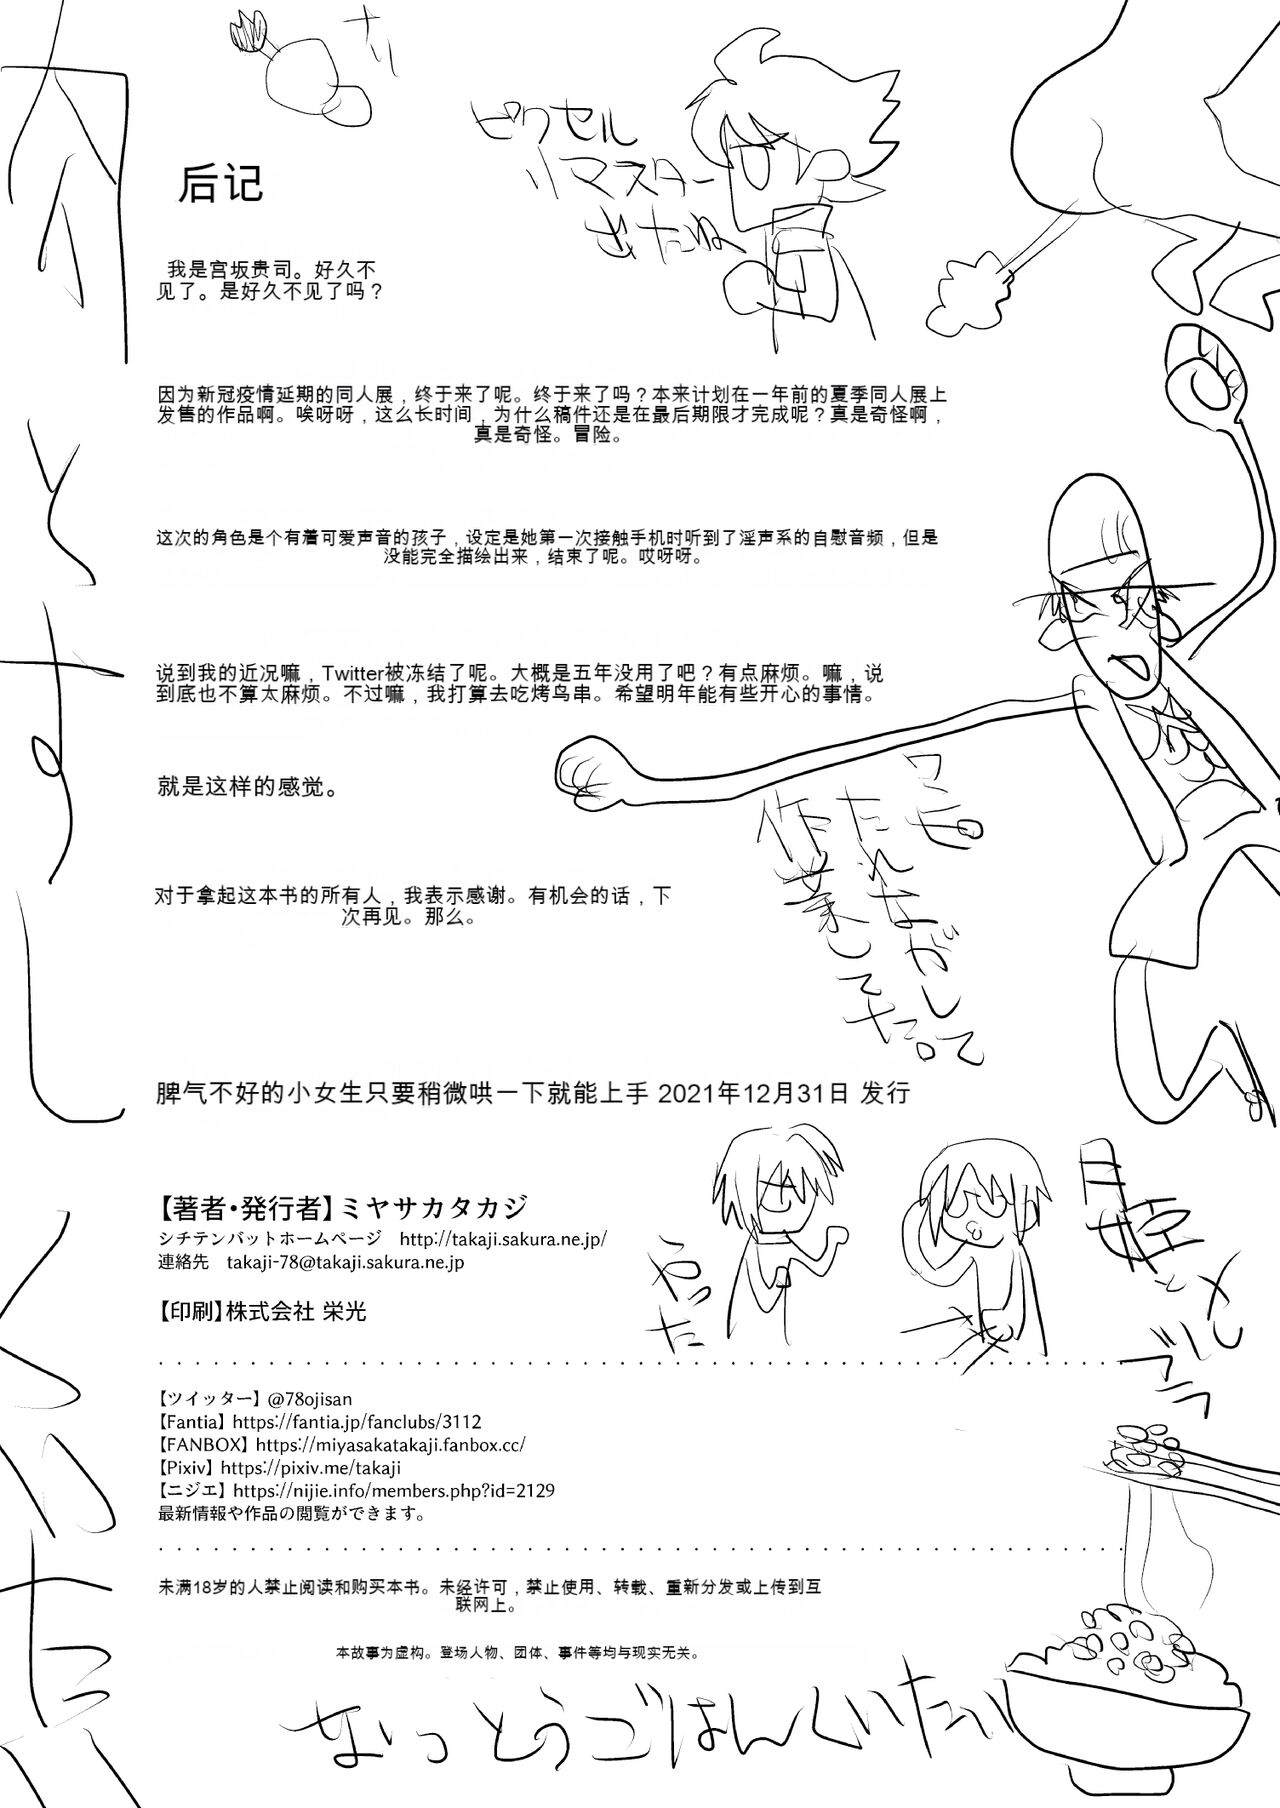 ナリ
ピクセル
リマスター
出たね
后记
我是宫坂贵司。好久不
见了。是好久不见了吗？
因为新冠疫情延期的同人展，终于来了呢。终于来了吗？本来计划在一年前的夏季同人展上
发售的作品啊。唉呀呀，这么长时间，为什么稿件还是在最后期限才完成呢？真是奇怪啊，
真是奇怪。冒险。
这次的角色是个有着可爱声音的孩子，设定是她第一次接触手机时听到了淫声系的自慰音频，但是
没能完全描绘出来，结束了呢。哎呀呀。
说到我的近况嘛，Twitter被冻结了呢。大概是五年没用了吧？有点麻烦。嘛，说
到底也不算太麻烦。不过嘛，我打算去吃烤鸟串。希望明年能有些开心的事情。
就是这样的感觉。
ワンピ
たれながして
作業してた。
对于拿起这本书的所有人，我表示感谢。有机会的话，下
次再见。那么。
脾气不好的小女生只要稍微哄一下就能上手 2021年12月31日 发行
【著者・発行者】ミヤサカタカジ
シチテンバットホームページ　http://takaji.sakura.ne.jp/
連絡先　takaji-78@takaji.sakura.ne.jp
【印刷】株式会社 栄光
【ツイッター】@78ojisan
【Fantia】https://fantia.jp/fanclubs/3112
【FANBOX】https://miyasakatakaji.fanbox.cc/
【Pixiv】https://pixiv.me/takaji
【ニジエ】https://nijie.info/members.php?id=2129
最新情報や作品の閲覧ができます。
未满18岁的人禁止阅读和购买本书。未经许可，禁止使用、转载、重新分发或上传到互
联网上。
本故事为虚构。登场人物、团体、事件等均与现实无关。
なっとうごはんくいたい